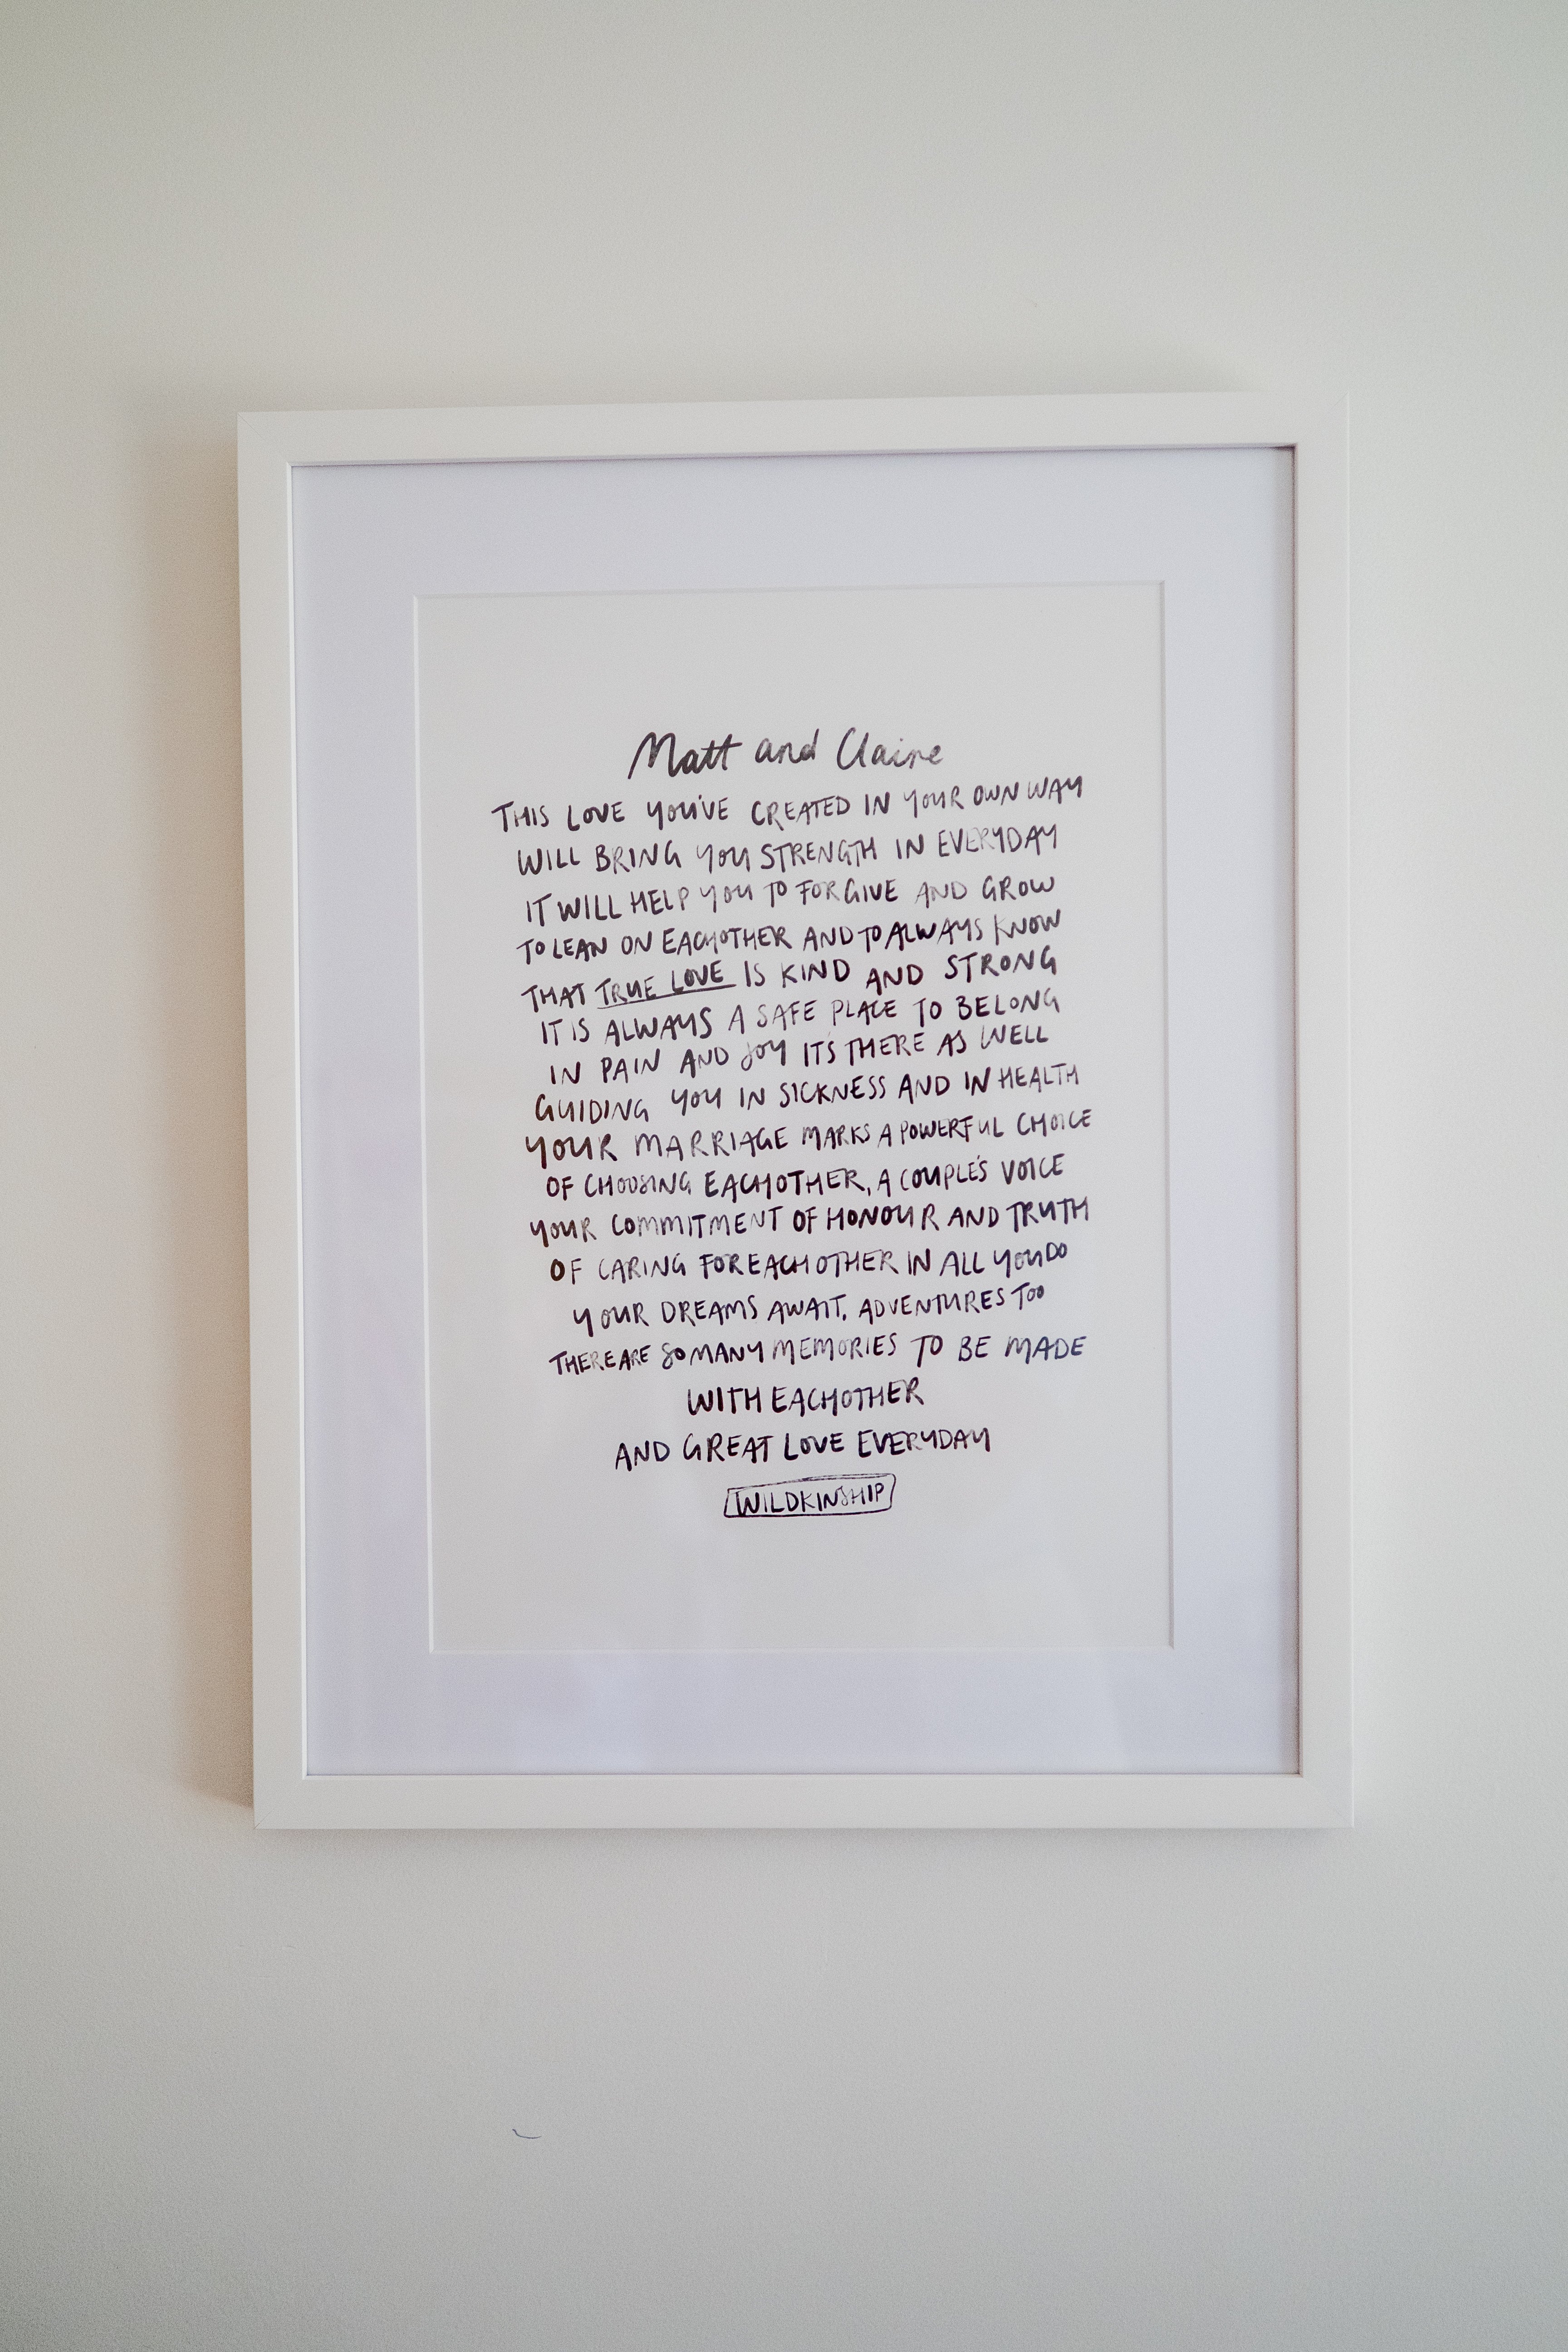 Matt and Claire
THIS LOVE YOU'VE CREATED IN YOUR OWN WAY
WILL BRING YOU STRENGTH IN EVERYDAY
IT WILL HELP YOU TO FORGIVE AND GROW
TO LEAN ON EACHOTHER AND TO ALWAYS KNOW
THAT TRUE LOVE IS KIND AND STRONG
IT IS ALWAYS A SAFE PLACE TO BELONG
IN PAIN AND JOY IT'S THERE AS WELL
GUIDING YOU IN SICKNESS AND IN HEALTH
YOUR MARRIAGE MARKS A POWERFUL CHOICE
OF CHOOSING EACHOTHER, A COUPLE'S VOICE
YOUR COMMITMENT OF HONOUR AND TRUTH
OF CARING FOR EACHOTHER IN ALL YOU DO
YOUR DREAMS AWAIT, ADVENTURES TOO
THERE ARE SO MANY MEMORIES TO BE MADE
WITH EACHOTHER
AND GREAT LOVE EVERYDAY
WILDKINSHIP